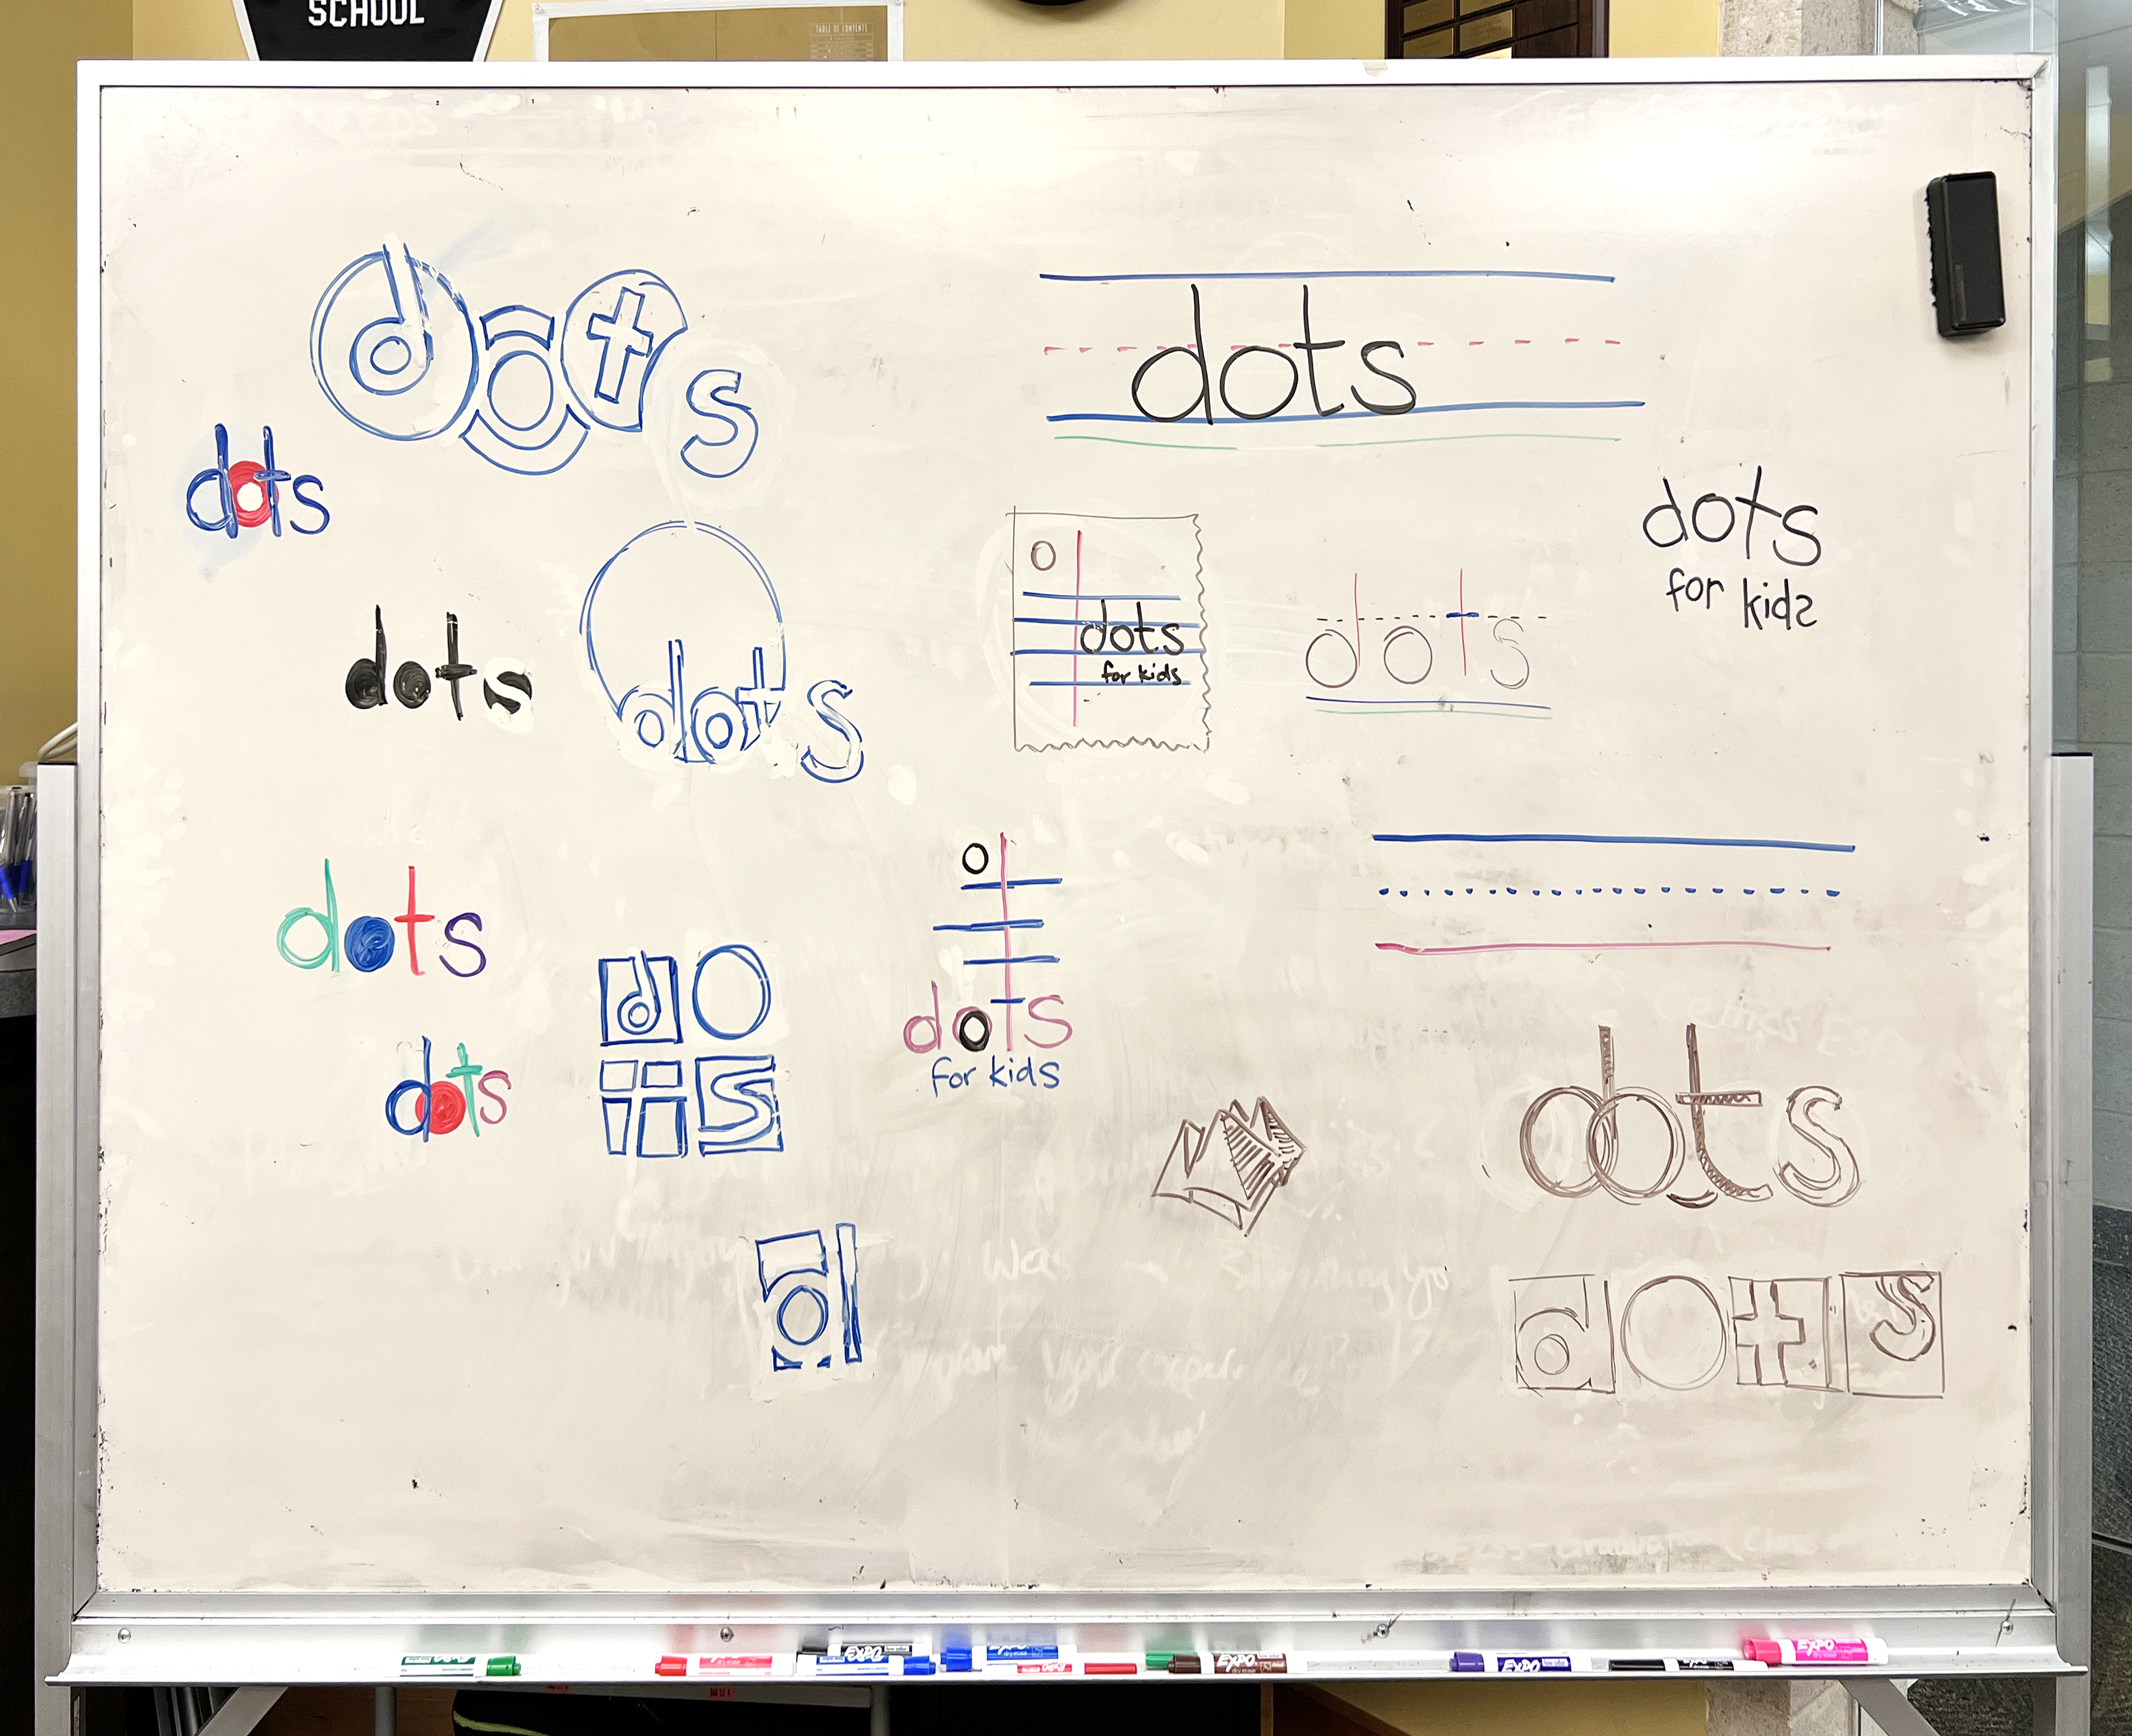 SCHOOL
TABLE OF CONTENTS
dots
dots
dots
dots
for kids
dots
for kids
dots
dots
dots
dots
dots
for kids
dots
do
ts
dots
d
dots
EXPO
EXPO
EXPO
EXPO
EXPO